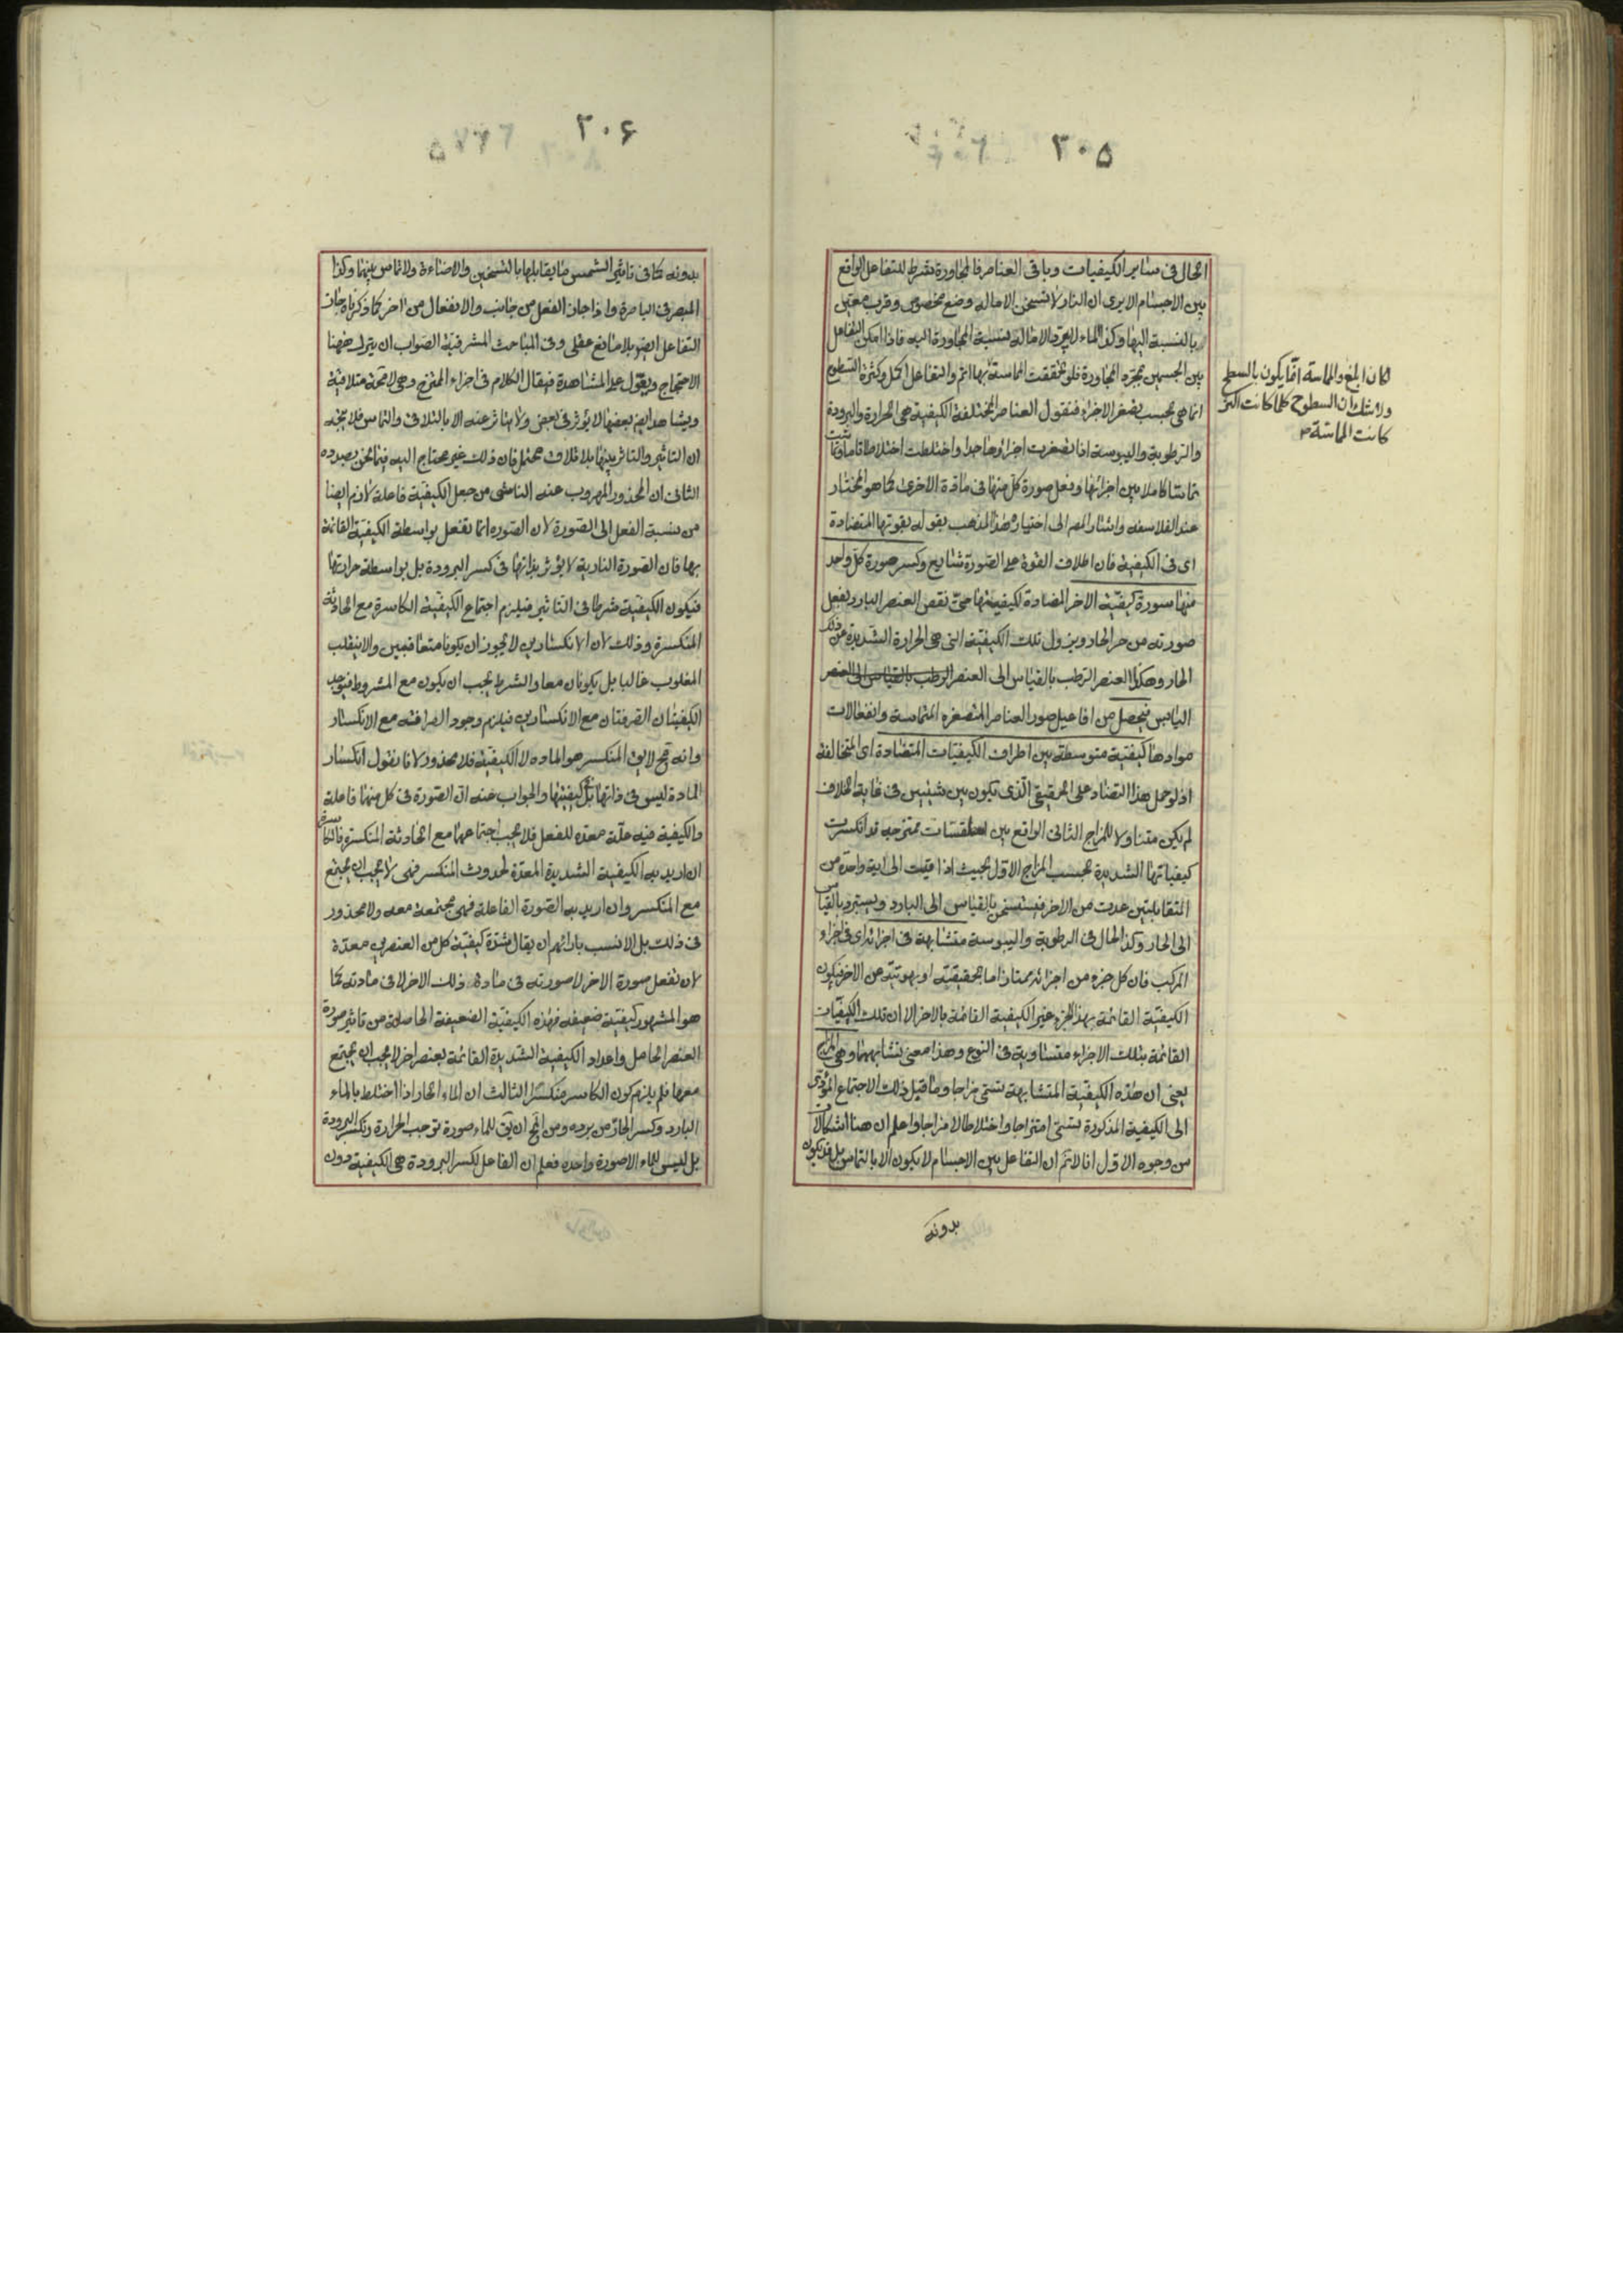 ٣٠٥
الحال فى ساير الكيفيات وباقى العناصر فالمجاورة شرط للتفاعل الواقع
بين الاجسام الا يرى ان النار لا تسخن الا ماله وضع مخصوص وقرب معين
بالنسبة اليها وكذا الماء لا يبرد الا ماله نسبة المجاورة اليه فاذا امكن التفاعل
بين الجسمين بمجرد المجاورة فلو تحققت المماسة بها اتم والتفاعل اكمل وكثرة السطوح
انما هى بحسب تصغر الاجزاء فنقول العناصر المختلفة الكيفية هى الحرارة والبرودة
والرطوبة واليبوسة اذا تصغرت اجزاؤها جدا واختلطت اختلاطا تاما وتماست
تماسا كاملا بين اجزائها وفعل صورة كل منها فى مادة الاخرى كما هو المختار
عند الفلاسفه واشار المصر الى اختيار هذا المذهب بقوله بقوتها المتضادة
اى فى الكيفية فان اطلاق القوة على الصورة شايع وكسر صورة كل واحد
منها سورة كيفية الاخر المضادة لكيفيتها حتى نقص العنصر البارد بفعل
صورته من حر الحار ويزول تلك الكيفية التى هى الحرارة الشديدة عن ذلك
الحار وهكذا العنصر الرطب بالقياس الى العنصر الرطب بالقياس الى العنصر
اليابس فيحصل من افاعيل صور العناصر المتصغره المتماسة وانفعالات
موادها كيفية متوسطة بين اطراف الكيفيات المتضادة اى المتخالفة
اذ لو حمل هذا التضاد على الحقيقى الذى يكون بين شيئين فى غاية الخلاف
لم يكن متناولا للمزاج الثانى الواقع بين اسطقسات ممتزجه قد انكسرت
كيفياتها الشديدة بحسب المزاج الاول بحيث اذا قيست الى اية واحدة من
المتقابلتين عدت من الاخر فيستسخن بالقياس الى البارد ويستبرد بالقياس
الى الحار وكذا الحال فى الرطوبة واليبوسة متشابهة فى اجزائه اى فى اجزاء
المركب فان كل جزء من اجزائه ممتاز اما بحقيقيته او بهويته عن الاخر فيكون
الكيفية القائمة بهذا الجزء غير الكيفية القائمة بالاخر الا ان تلك الكيفيات
القائمة بتلك الاجزاء متساوية فى النوع وهذا معنى تشابهها وهى المزاج
يعنى ان هذه الكيفية المتشابهة تسمى مزاجا وما قبل ذلك الاجتماع المؤدى
الى الكيفية المذكورة يسمى امتزاجا واختلاطا لا مزاجا واعلم ان هنا اشكالات
من وجوه الاول انا لا نم ان التفاعل بين الاجسام لا يكون الا بالتماس بل قد يكون
بدونه
والمماسة انما يكون بالسطح
ولا شك ان السطوح كلما كانت اكثر
كانت المماسة
٣٠۶
بدونه كما فى تاثير الشمس ما يقابلها بالتسخين والاضاءة ولا تماس بينهما وكذا
المبصر فى الباصرة واذا جاز الفعل من جانب والانفعال من اخر كما ذكرناه جاز
التفاعل ايضو بلا مانع عقلى وفى المباحث المشرقية الصواب ان يترك ههنا
الاحتجاج ويعول على المشاهدة فيقال الكلام فى اجزاء الممتزج وهى لا محة متلاقية
ويشاهد ايض بعضها لا يؤثر فى بعض ولا يتاثر عنه الا بالتلاقى والتماس فلا يتجه
ان التاثير والتاثر بينها بلا تلاق محتمل فان ذلك غير محتاج اليه فيما نحن بصدده
الثانى ان المحذور المهروب عنه الناشى من جعل الكيفية فاعلة لازم ايضا
من نسبة الفعل الى الصورة لان الصوره انما تفعل بواسطة الكيفية القائمة
بها فان الصورة النارية لا يؤثر بذاتها فى كسر البرودة بل بواسطة حرارتها
فيكون الكيفية شرطا فى التاثير فيلزم اجتماع الكيفية الكاسرة مع الحادثة
المنكسرة وذلك لان الانكسارين لا يجوز ان يكونا متعاقبين والا ينقلب
المغلوب غالبا بل يكونان معا والشرط يجب ان يكون مع المشروط فيوجد
الكيفيتان الصرفتان مع الانكسارين فيلزم وجود الصرافة مع الانكسار
وانه مح لايق المنكسر هو الماده لا الكيفية فلا محذور لانا نقول انكسار
المادة ليس فى ذاتها بل كيفيتها والجواب عنه ان الصورة فى كل منهما فاعلة
والكيفية فيه علة معده للفعل فلا يجب اجتماعهما مع الحادثة المنكسرة فالكاسر
ان اريد به الكيفية الشديدة المعدة لحدوث المنكسر فهى لا يجب ان يجتمع
مع المنكسر وان اريد به الصورة الفاعلة فهى مجتمعة معه ولا محذور
فى ذلك بل الانسب بارائهم ان يقال شدة كيفية كل من العنصرين معدة
لان تفعل صورة الاخر لا صورته فى مادة ذلك الاخر لا فى مادته كما
هو المشهور كيفية ضعيفه فهذه الكيفية الضعيفة الحاصلة من تاثير صورة
العنصر الحاصل واعداد الكيفية الشديدة القائمة بعنصر اخر لا يجب ان يجتمع
معها فلم يلزم كون الكاسر منكسرا الثالث ان الماء الحار اذا اختلط بالماء
البارد وكسر الحار من برده ومن المح ان يق للماء صورة توجب الحرارة وتكسر البرودة
بل ليس للماء الا صورة واحده فعلم ان الفاعل لكسر البرودة هى الكيفية دون